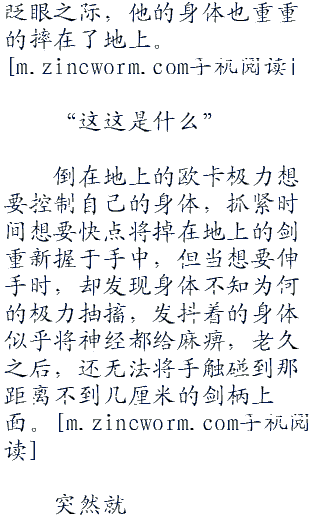 眨眼之际，他的身体也重重
的摔在了地上。
[m.zincworm.com手机阅读i
“这这是什么”
倒在地上的欧卡极力想
要控制自己的身体，抓紧时
间想要快点将掉在地上的剑
重新握于手中，但当想要伸
手时，却发现身体不知为何
的极力抽搐，发抖着的身体
似乎将神经都给麻痹，老久
之后，还无法将手触碰到那
距离不到几厘米的剑柄上
面。[m.zincworm.com手机阅
读]
突然就